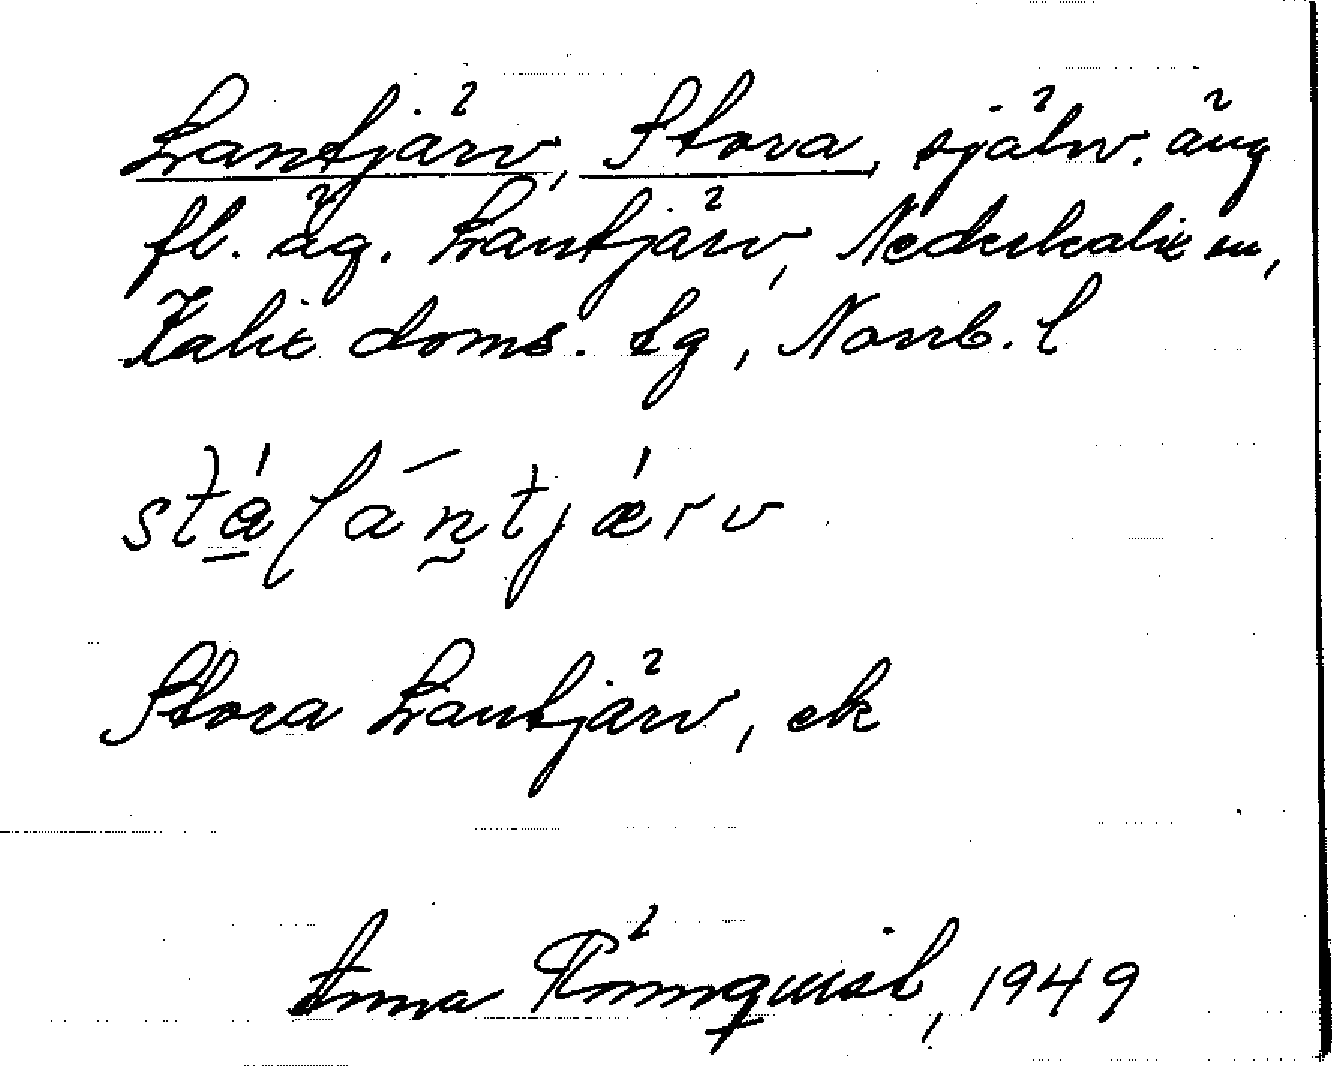 Lantjärv, Stora, självv. äng
fl. äg. Lantjärv, Nederkalix sn,
Kalix doms. tg, Norrb. l
stálántjǽrv
Stora Lantjärv, ek
Anna Rönnquist, 1949